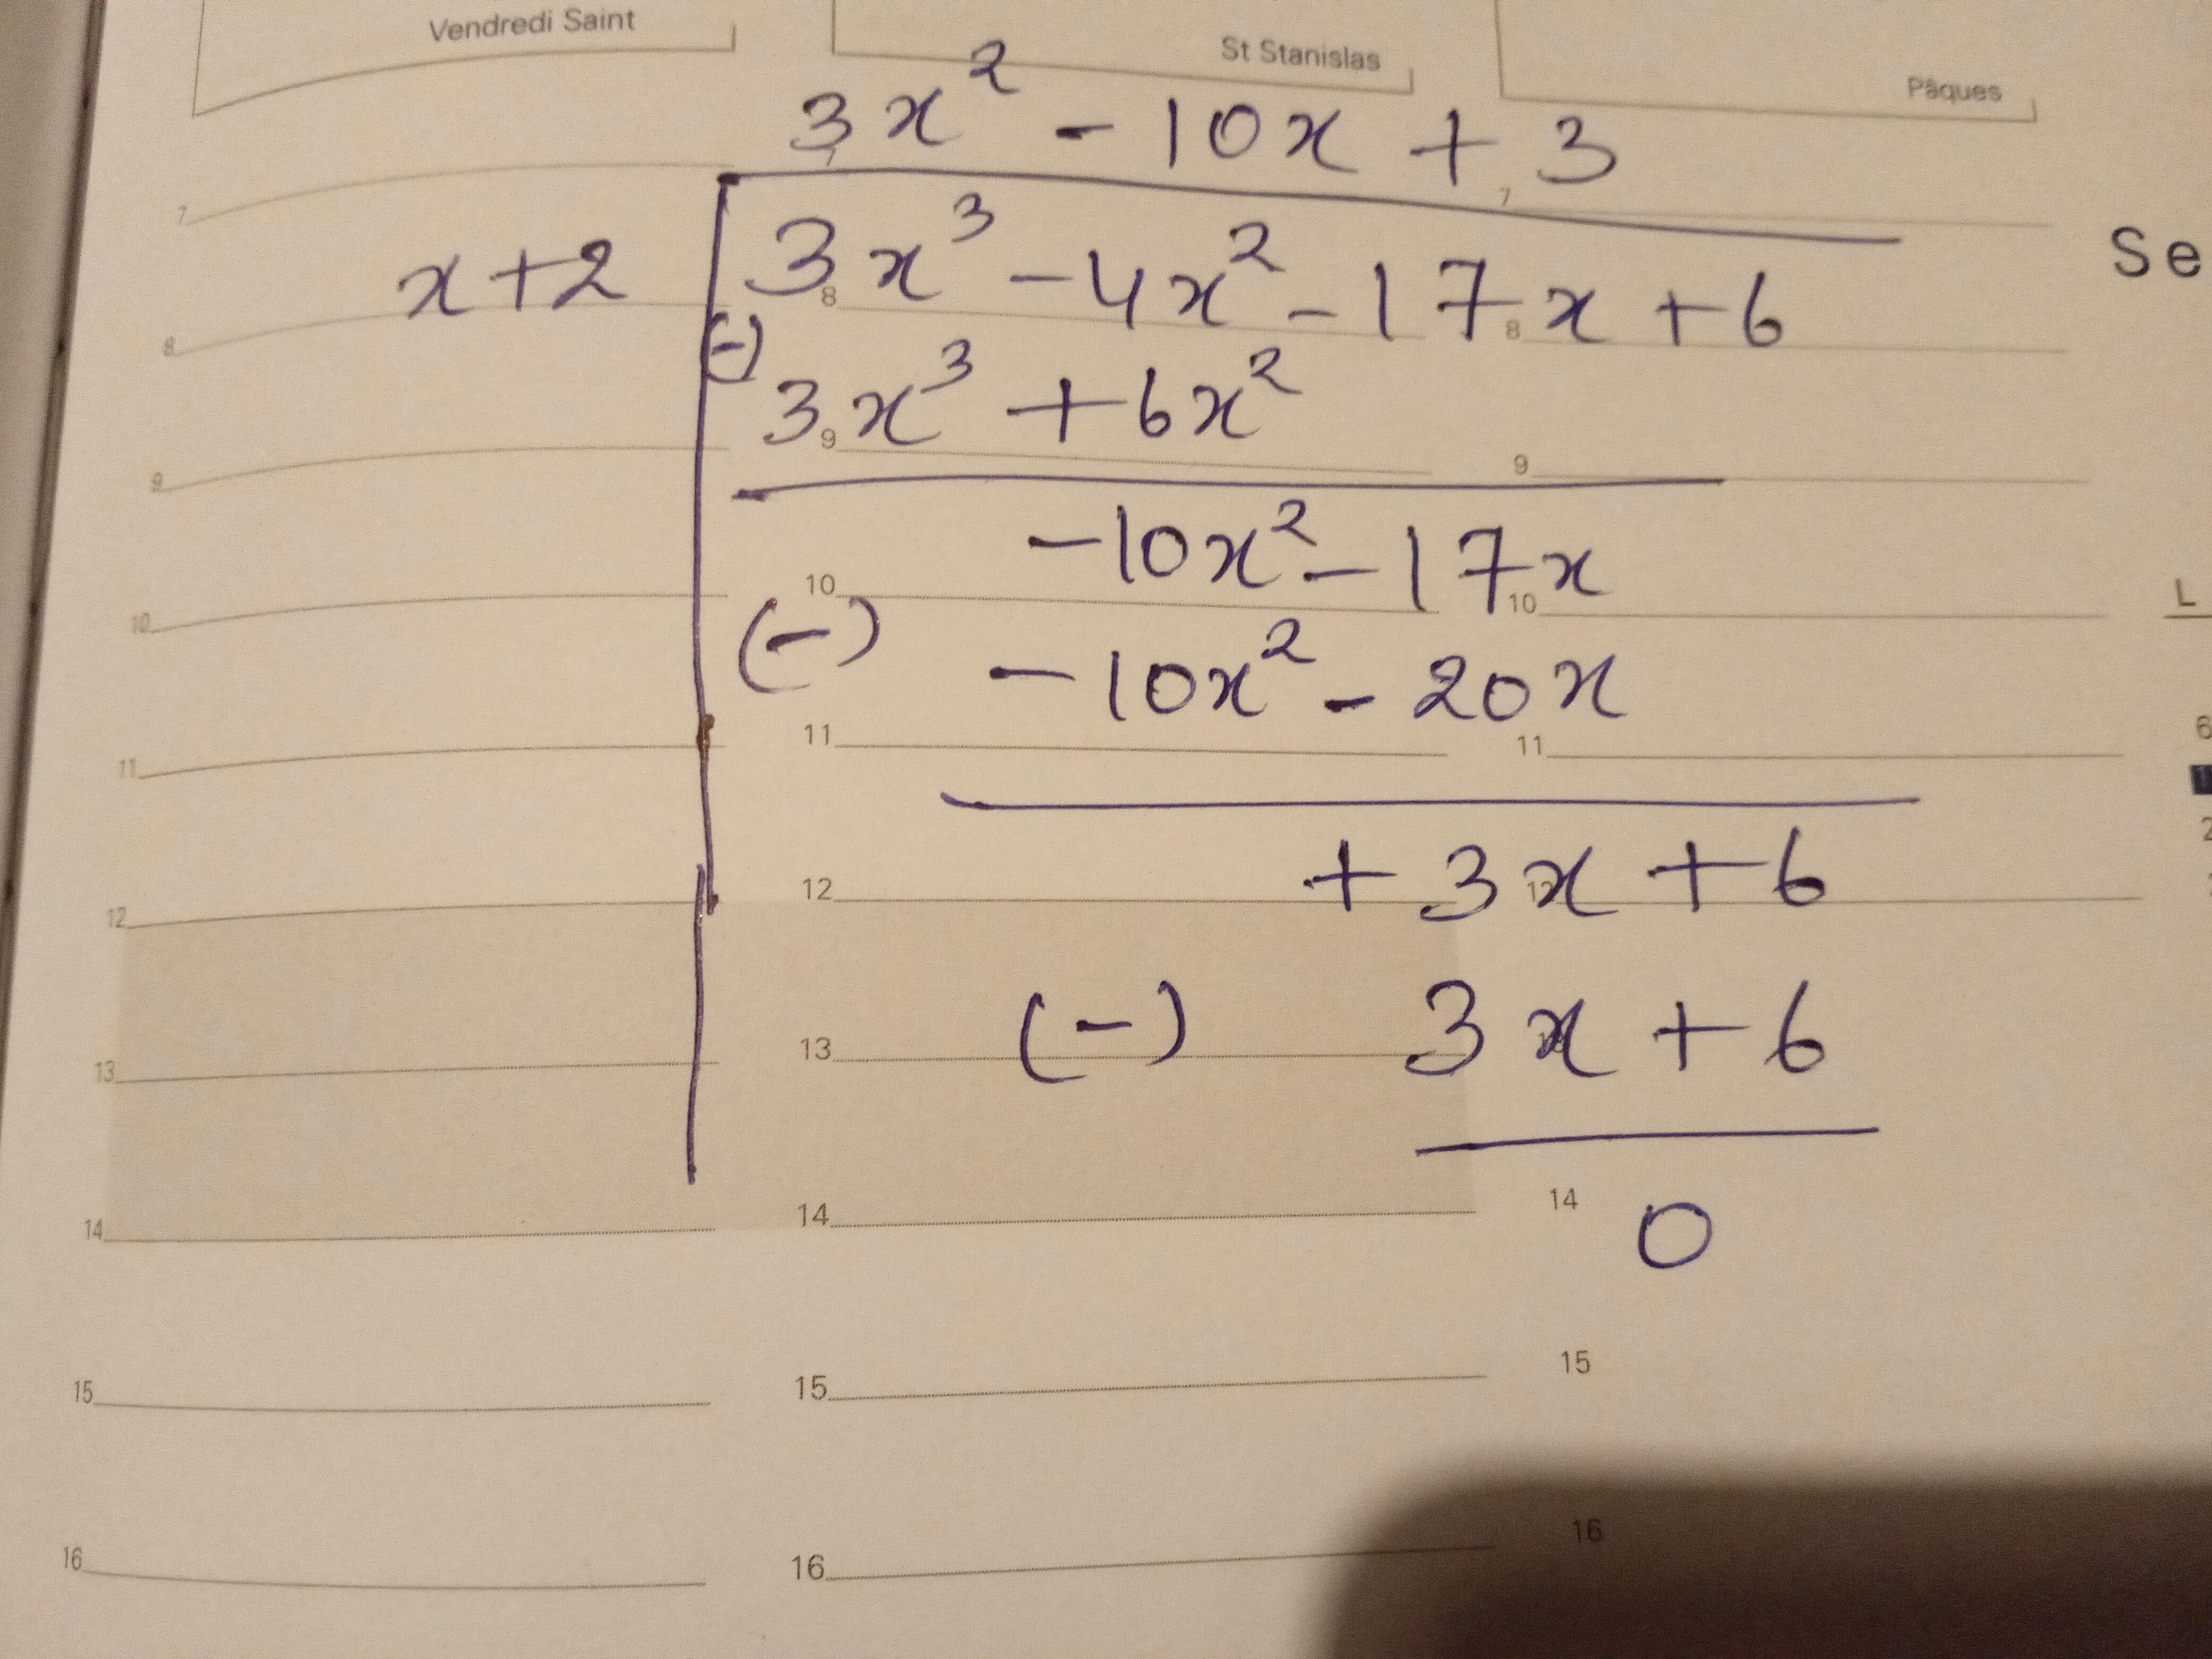 Vendredi Saint
St Stanislas
Pâques
3x² - 10x + 3
7
7
7
x+2
3x³ - 4x² - 17x + 6
Se
8
8
8
(-)
3x³ + 6x²
9
9
9
-10x² - 17x
10
10
10
L
(-)
-10x² - 20x
11
11
11
6
+ 3x + 6
12
12
12
2
(-)
3x + 6
13
13
14
14
14
0
15
15
15
16
16
16